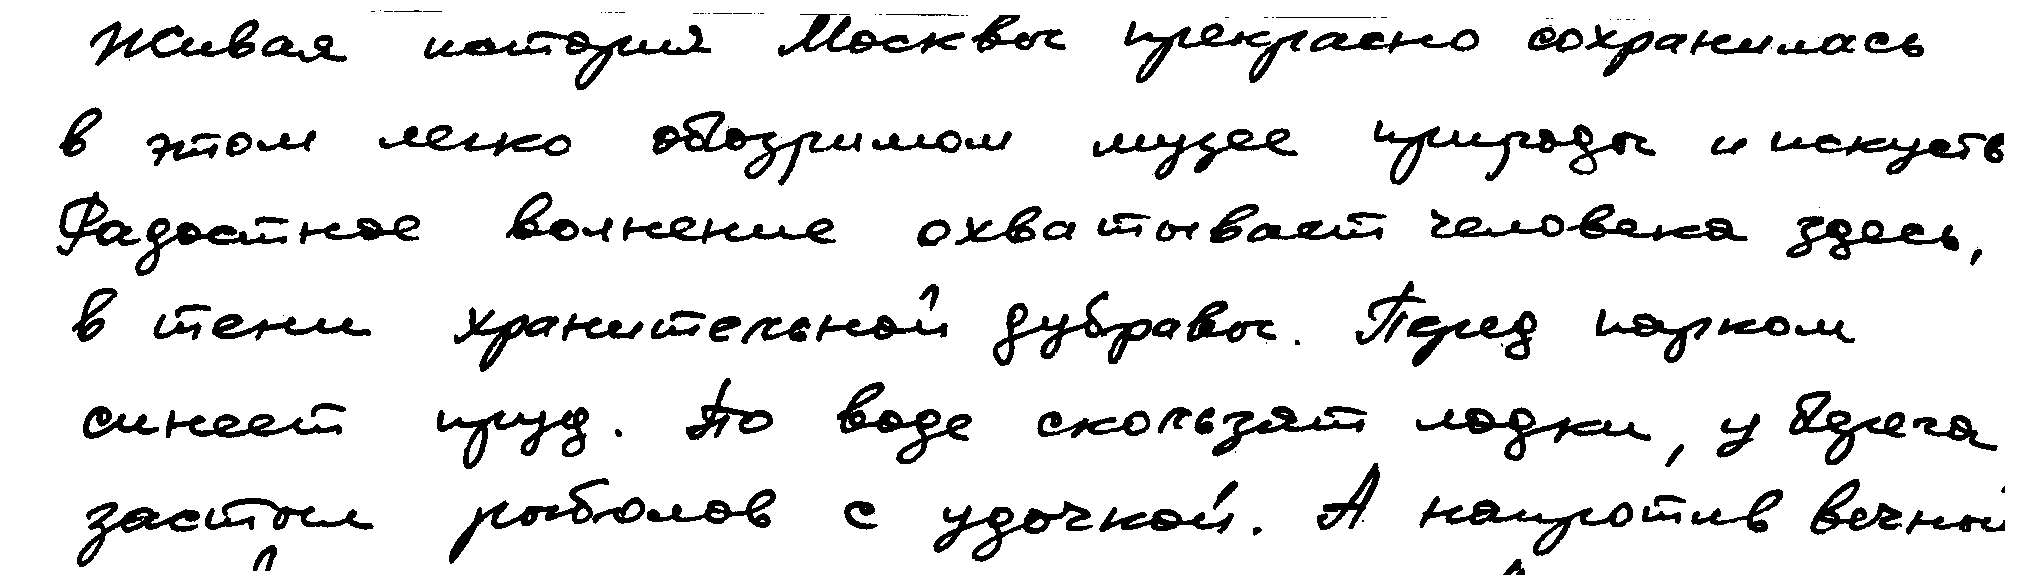 Живая история Москвы прекрасно сохранилась
в этом легко обозримом музее природы и искуств
Радостное волнение охватывает человека здесь,
в тени хранительной дубравы. Перед парком
синеет пруд. По воде скользят лодки, у берега
застыл рыболов с удочкой. А напротив вечной